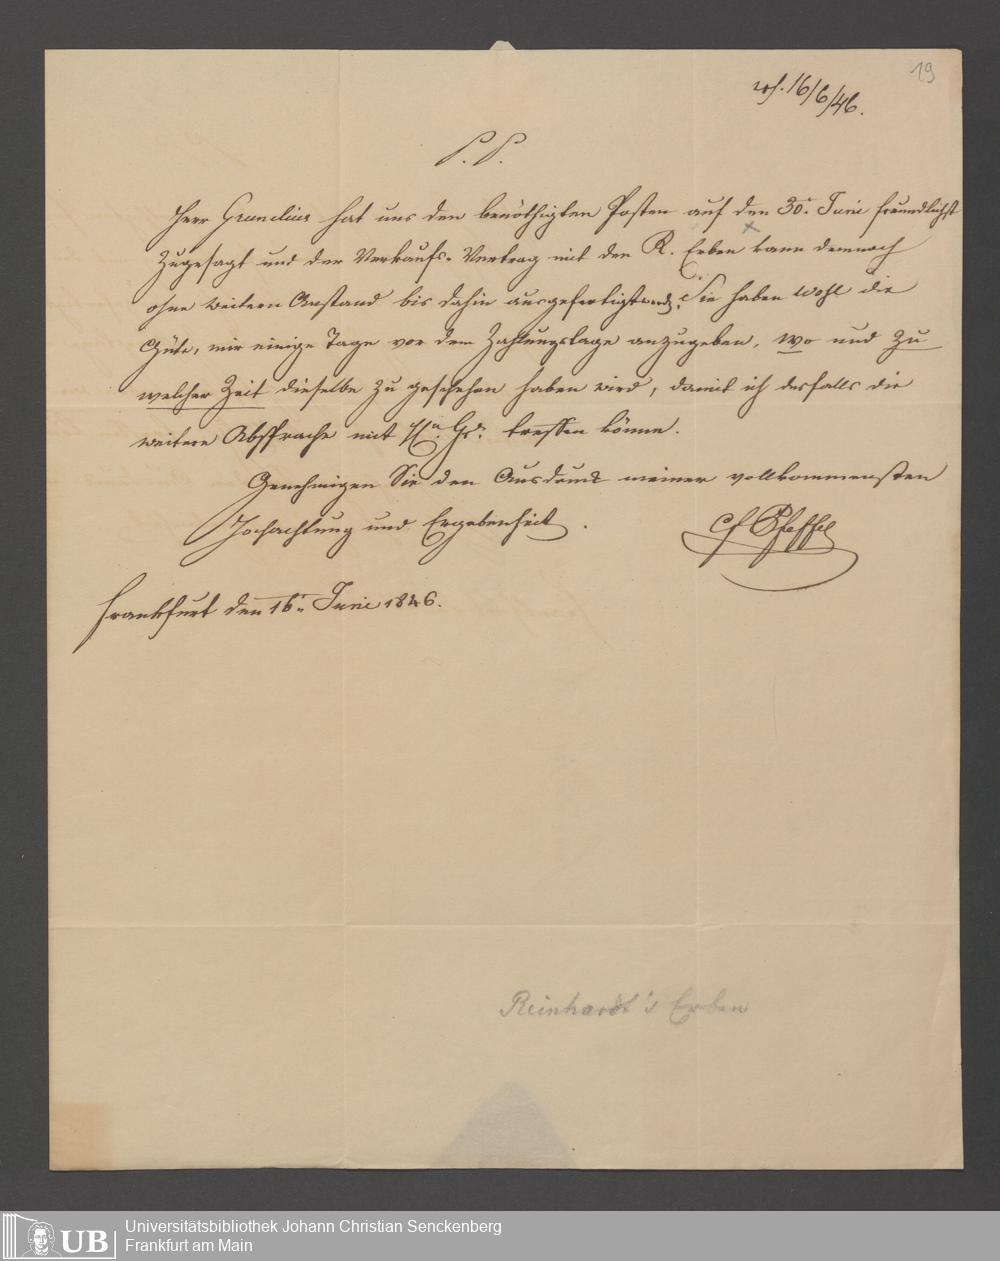 19
16/6/46.
P. P.
Herr Grunelius hat uns den benöthigten Posten auf den 30. Juni freundlichst
zugesagt und der Verkaufs-Vertrag mit den R. Erben kann demnach
ohne weitern Anstand bis dahin ausgefertigt Sie haben wohl die
Güte, mir einige Tage vor dem Zahlungstage anzugeben, wo und zu
welcher Zeit dieselbe zu geschehen haben wird, damit ich desfalls die
weitere Absprache mit treffen könne.
Genehmigen Sie den Ausdruck meiner vollkommensten
Hochachtung und Ergebenheit.
Pfeffel
Frankfurt den 16. Juni 1846.
Reinhardt's Erben
UB
Universitätsbibliothek Johann Christian Senckenberg
Frankfurt am Main